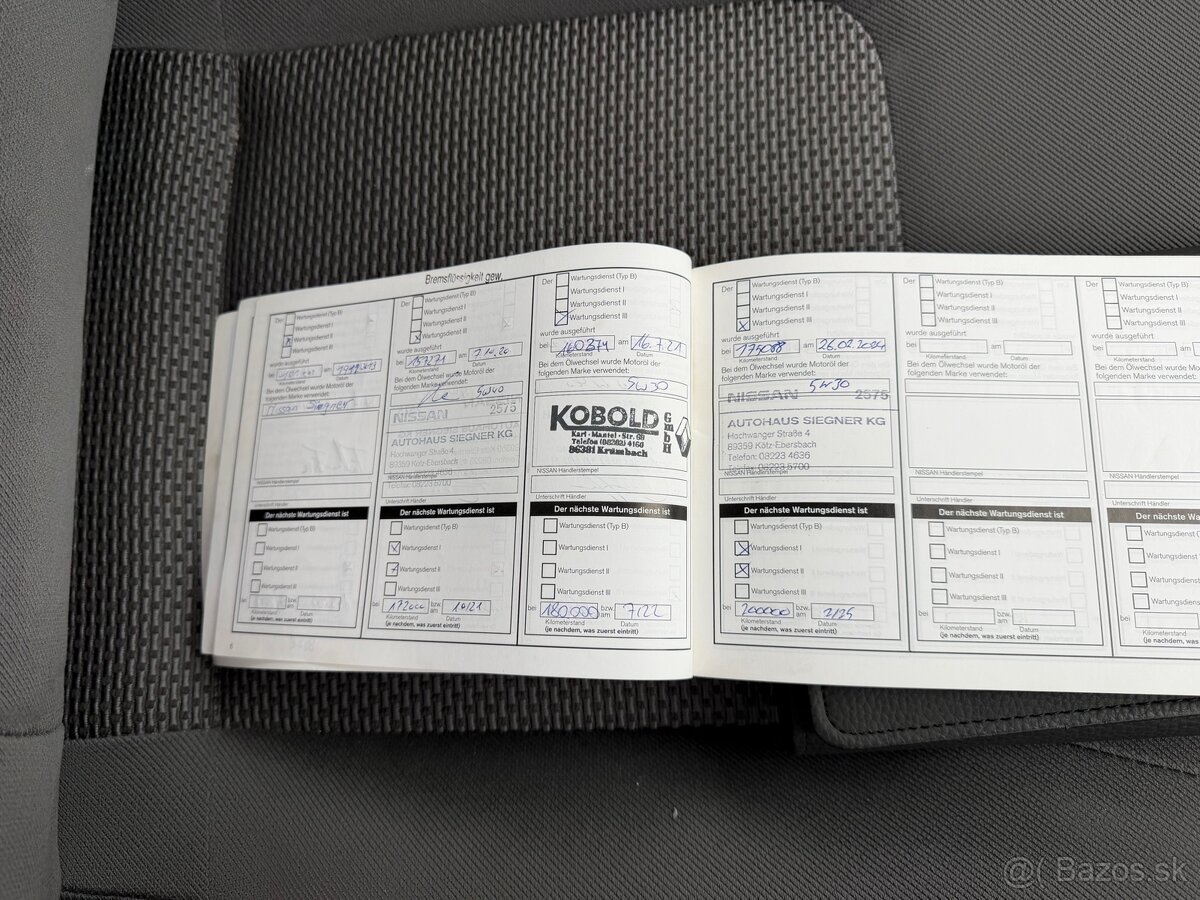 Bremsflüssigkeit gew.
Wartungsdienst (Typ B)
Wartungsdienst I
Wartungsdienst II
Wartungsdienst III
wurde ausgeführt
bei
Kilometerstand
Bei dem Ölwechsel wurde Motoröl der
folgenden Marke verwendet:
Nissan Siegner
Unterschrift Händler
Der nächste Wartungsdienst ist
Wartungsdienst (Typ B)
Wartungsdienst I
Wartungsdienst II
Wartungsdienst III
bei bzw. am
Kilometerstand Datum
(je nachdem, was zuerst eintritt)
6
Der Wartungsdienst (Typ B)
Wartungsdienst I
Wartungsdienst II
Wartungsdienst III
wurde ausgeführt
bei am
Kilometerstand Datum
Bei dem Ölwechsel wurde Motoröl der
folgenden Marke verwendet:
5W40
NISSAN 2575
AUTOHAUS SIEGNER KG
Hochwanger Straße 4
89359 Kötz-Ebersbach
Telefon: 08223 4636
Telefax: 08223 5700
Unterschrift Händler
Der nächste Wartungsdienst ist
Wartungsdienst (Typ B)
Wartungsdienst I
Wartungsdienst II
Wartungsdienst III
bei 172000 bzw. am 10/21
Kilometerstand Datum
(je nachdem, was zuerst eintritt)
Der Wartungsdienst (Typ B)
Wartungsdienst I
Wartungsdienst II
Wartungsdienst III
wurde ausgeführt
bei 160374 am 16.7.21
Kilometerstand Datum
Bei dem Ölwechsel wurde Motoröl der
folgenden Marke verwendet:
5W30
KOBOLD GmbH
Karl-Mantel-Str. 68
Telefon (08282) 4160
86381 Krumbach
NISSAN Händlerstempel
Unterschrift Händler
Der nächste Wartungsdienst ist
Wartungsdienst (Typ B)
Wartungsdienst I
Wartungsdienst II
Wartungsdienst III
bei 180.000 bzw. am 7/22
Kilometerstand Datum
(je nachdem, was zuerst eintritt)
Der Wartungsdienst (Typ B)
Wartungsdienst I
Wartungsdienst II
Wartungsdienst III
wurde ausgeführt
bei 175088 am 26.02.2024
Kilometerstand Datum
Bei dem Ölwechsel wurde Motoröl der
folgenden Marke verwendet:
5W30
NISSAN 2575
AUTOHAUS SIEGNER KG
Hochwanger Straße 4
89359 Kötz-Ebersbach
Telefon: 08223 4636
Telefax: 08223 5700
NISSAN Händlerstempel
Unterschrift Händler
Der nächste Wartungsdienst ist
Wartungsdienst (Typ B)
Wartungsdienst I
Wartungsdienst II
Wartungsdienst III
bei 200000 bzw. am 2/25
Kilometerstand Datum
(je nachdem, was zuerst eintritt)
Der Wartungsdienst (Typ B)
Wartungsdienst I
Wartungsdienst II
Wartungsdienst III
wurde ausgeführt
bei am
Kilometerstand Datum
Bei dem Ölwechsel wurde Motoröl der
folgenden Marke verwendet:
NISSAN Händlerstempel
Unterschrift Händler
Der nächste Wartungsdienst ist
Wartungsdienst (Typ B)
Wartungsdienst I
Wartungsdienst II
Wartungsdienst III
bei bzw. am
Kilometerstand Datum
(je nachdem, was zuerst eintritt)
Der
wurde ausgeführt
bei
Kilometerstand
Bei dem Ölwechsel
folgenden Marke
NISSAN Händlerstempel
Unterschrift Händler
Der nächste
Wartungsdienst
Wartungsdienst
Wartungsdienst
Wartungsdienst
bei
Kilometerstand
(je nachdem, was
@( Bazos.sk